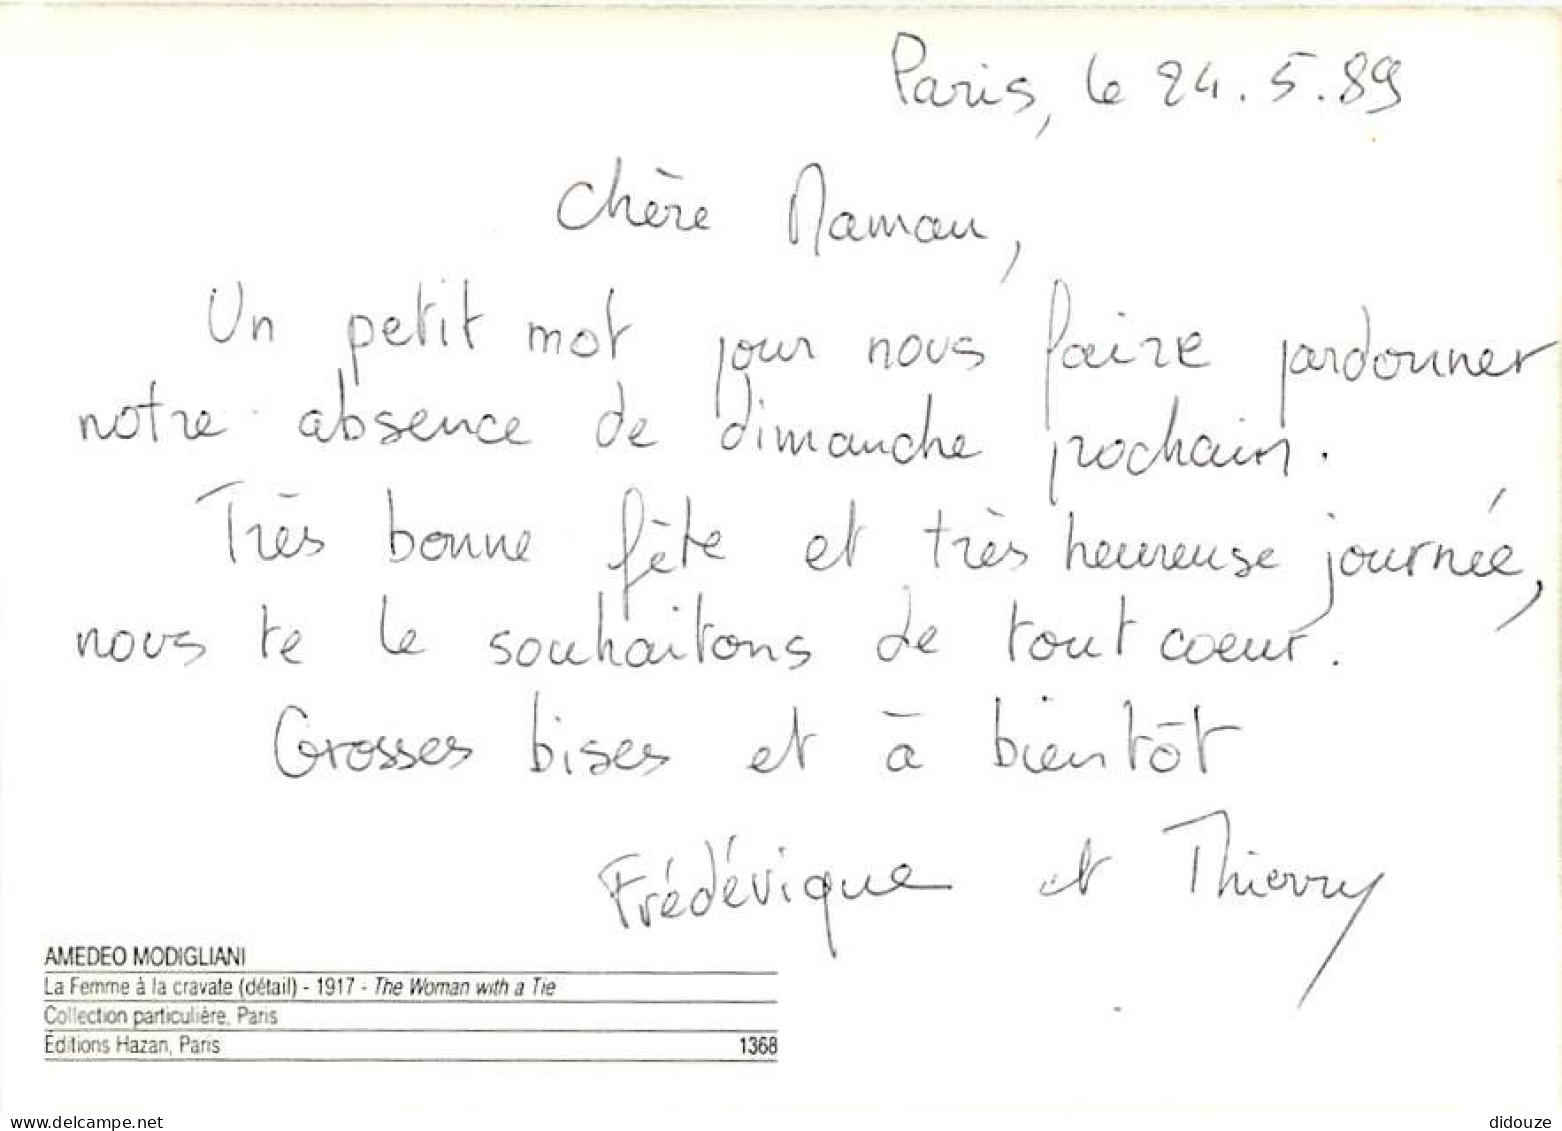 Paris, le 24.5.89
Chère Maman,
Un petit mot pour nous faire pardonner
notre absence de dimanche prochain.
Très bonne fête et très heureuse journée,
nous te le souhaitons de tout coeur.
Grosses bises et à bientôt
Frédérique et Thierry
AMEDEO MODIGLIANI
La Femme à la cravate (détail) - 1917 - The Woman with a Tie
Collection particulière, Paris
Editions Hazan, Paris 1368
delcampe.net
didouze